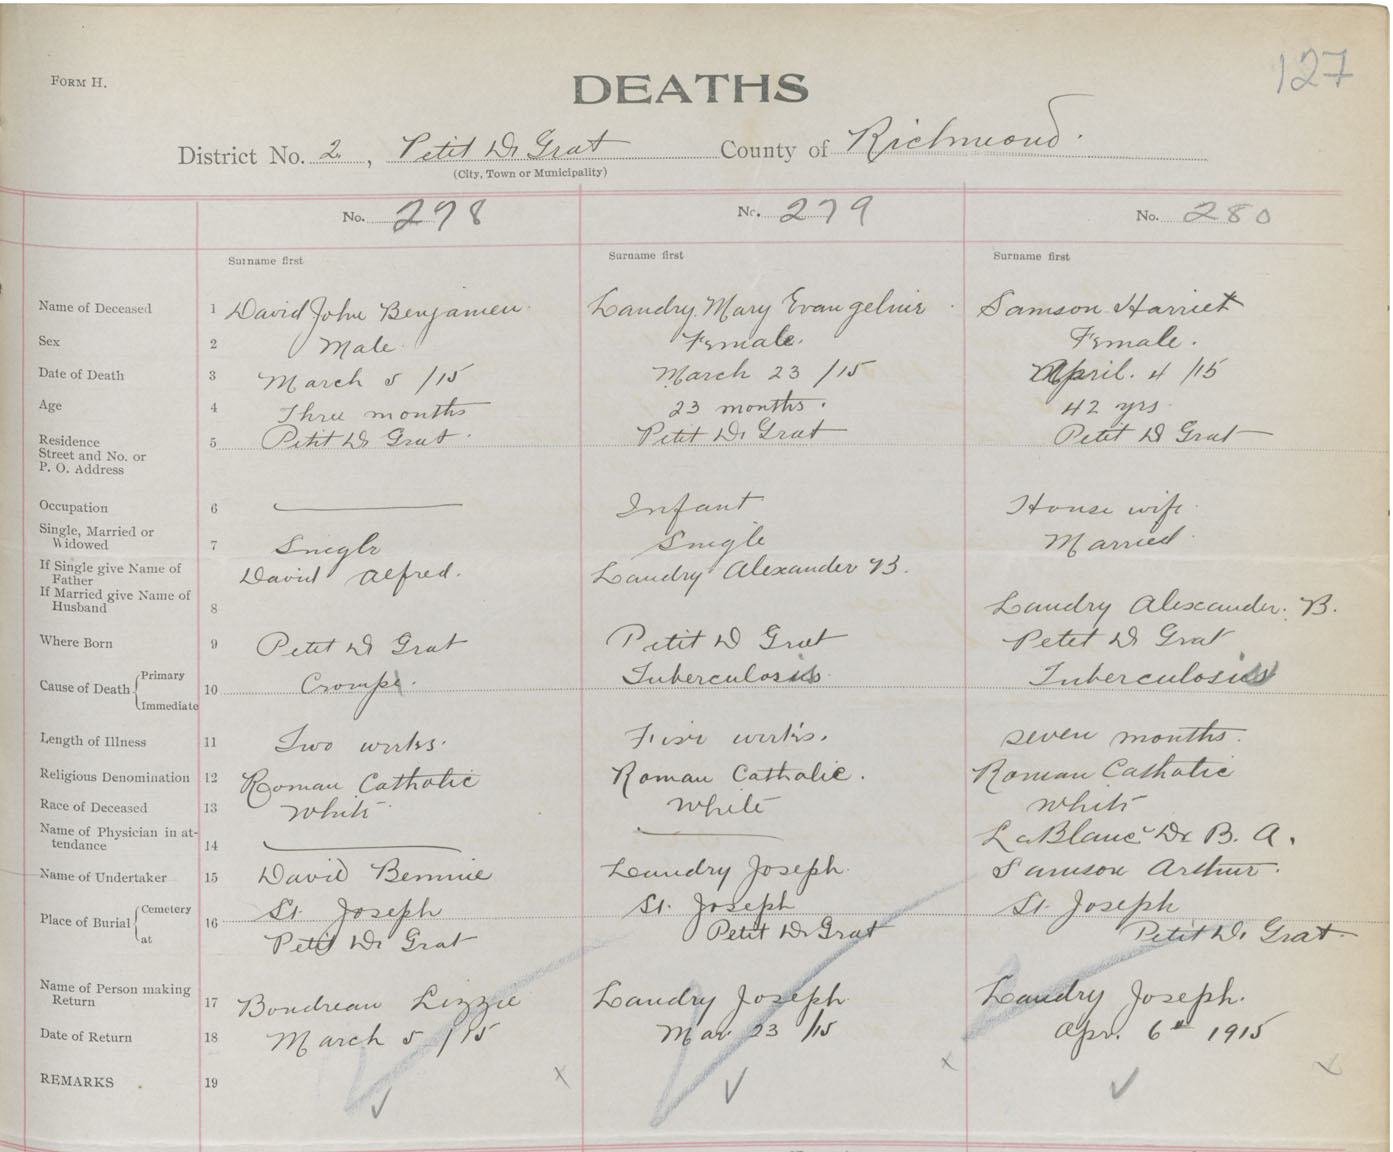 FORM H.
127
DEATHS
District No. 2, Petit De Grat County of Richmond.
(City, Town or Municipality)
No. 278 No. 279 No. 280
Surname first Surname first Surname first
Name of Deceased 1 David John Benjamen Landry Mary Evangelnie Samson Harriet
Sex 2 Male. Female. Female.
Date of Death 3 March 5 /15 March 23 /15 April. 4 /15
Age 4 Three months 23 months. 42 yrs
Residence
Street and No. or
P. O. Address 5 Petit De Grat. Petit De Grat Petit D Grat
Occupation 6 Infant House wife
Single, Married or
Widowed 7 Single Single Married.
If Single give Name of
Father David Alfred. Landry Alexander B.
If Married give Name of
Husband 8 Landry Alexander. B.
Where Born 9 Petit D Grat Petit D Grat Petit D Grat
Cause of Death Primary
Immediate 10 Tuberculosis. Tuberculosis
Length of Illness 11 Two weeks. Five weeks. seven months.
Religious Denomination 12 Roman Catholic Roman Catholic. Roman Catholic
Race of Deceased 13 White White White
Name of Physician in at-
tendance 14 LaBlanc Dr B. A.
Name of Undertaker 15 David Bennie Landry Joseph. Samson Arthur.
Place of Burial Cemetery 16 St. Joseph St. Joseph St. Joseph
at Petit De Grat Petit De Grat Petit De Grat
Name of Person making
Return 17 Boudreau Lizzie Landry Joseph Landry Joseph.
Date of Return 18 March 5 /15 Mar 23 /15 Apr. 6th 1915
REMARKS 19